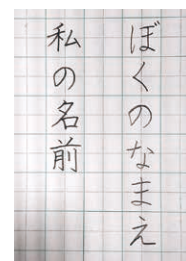 ぼくのなまえ
私の名前